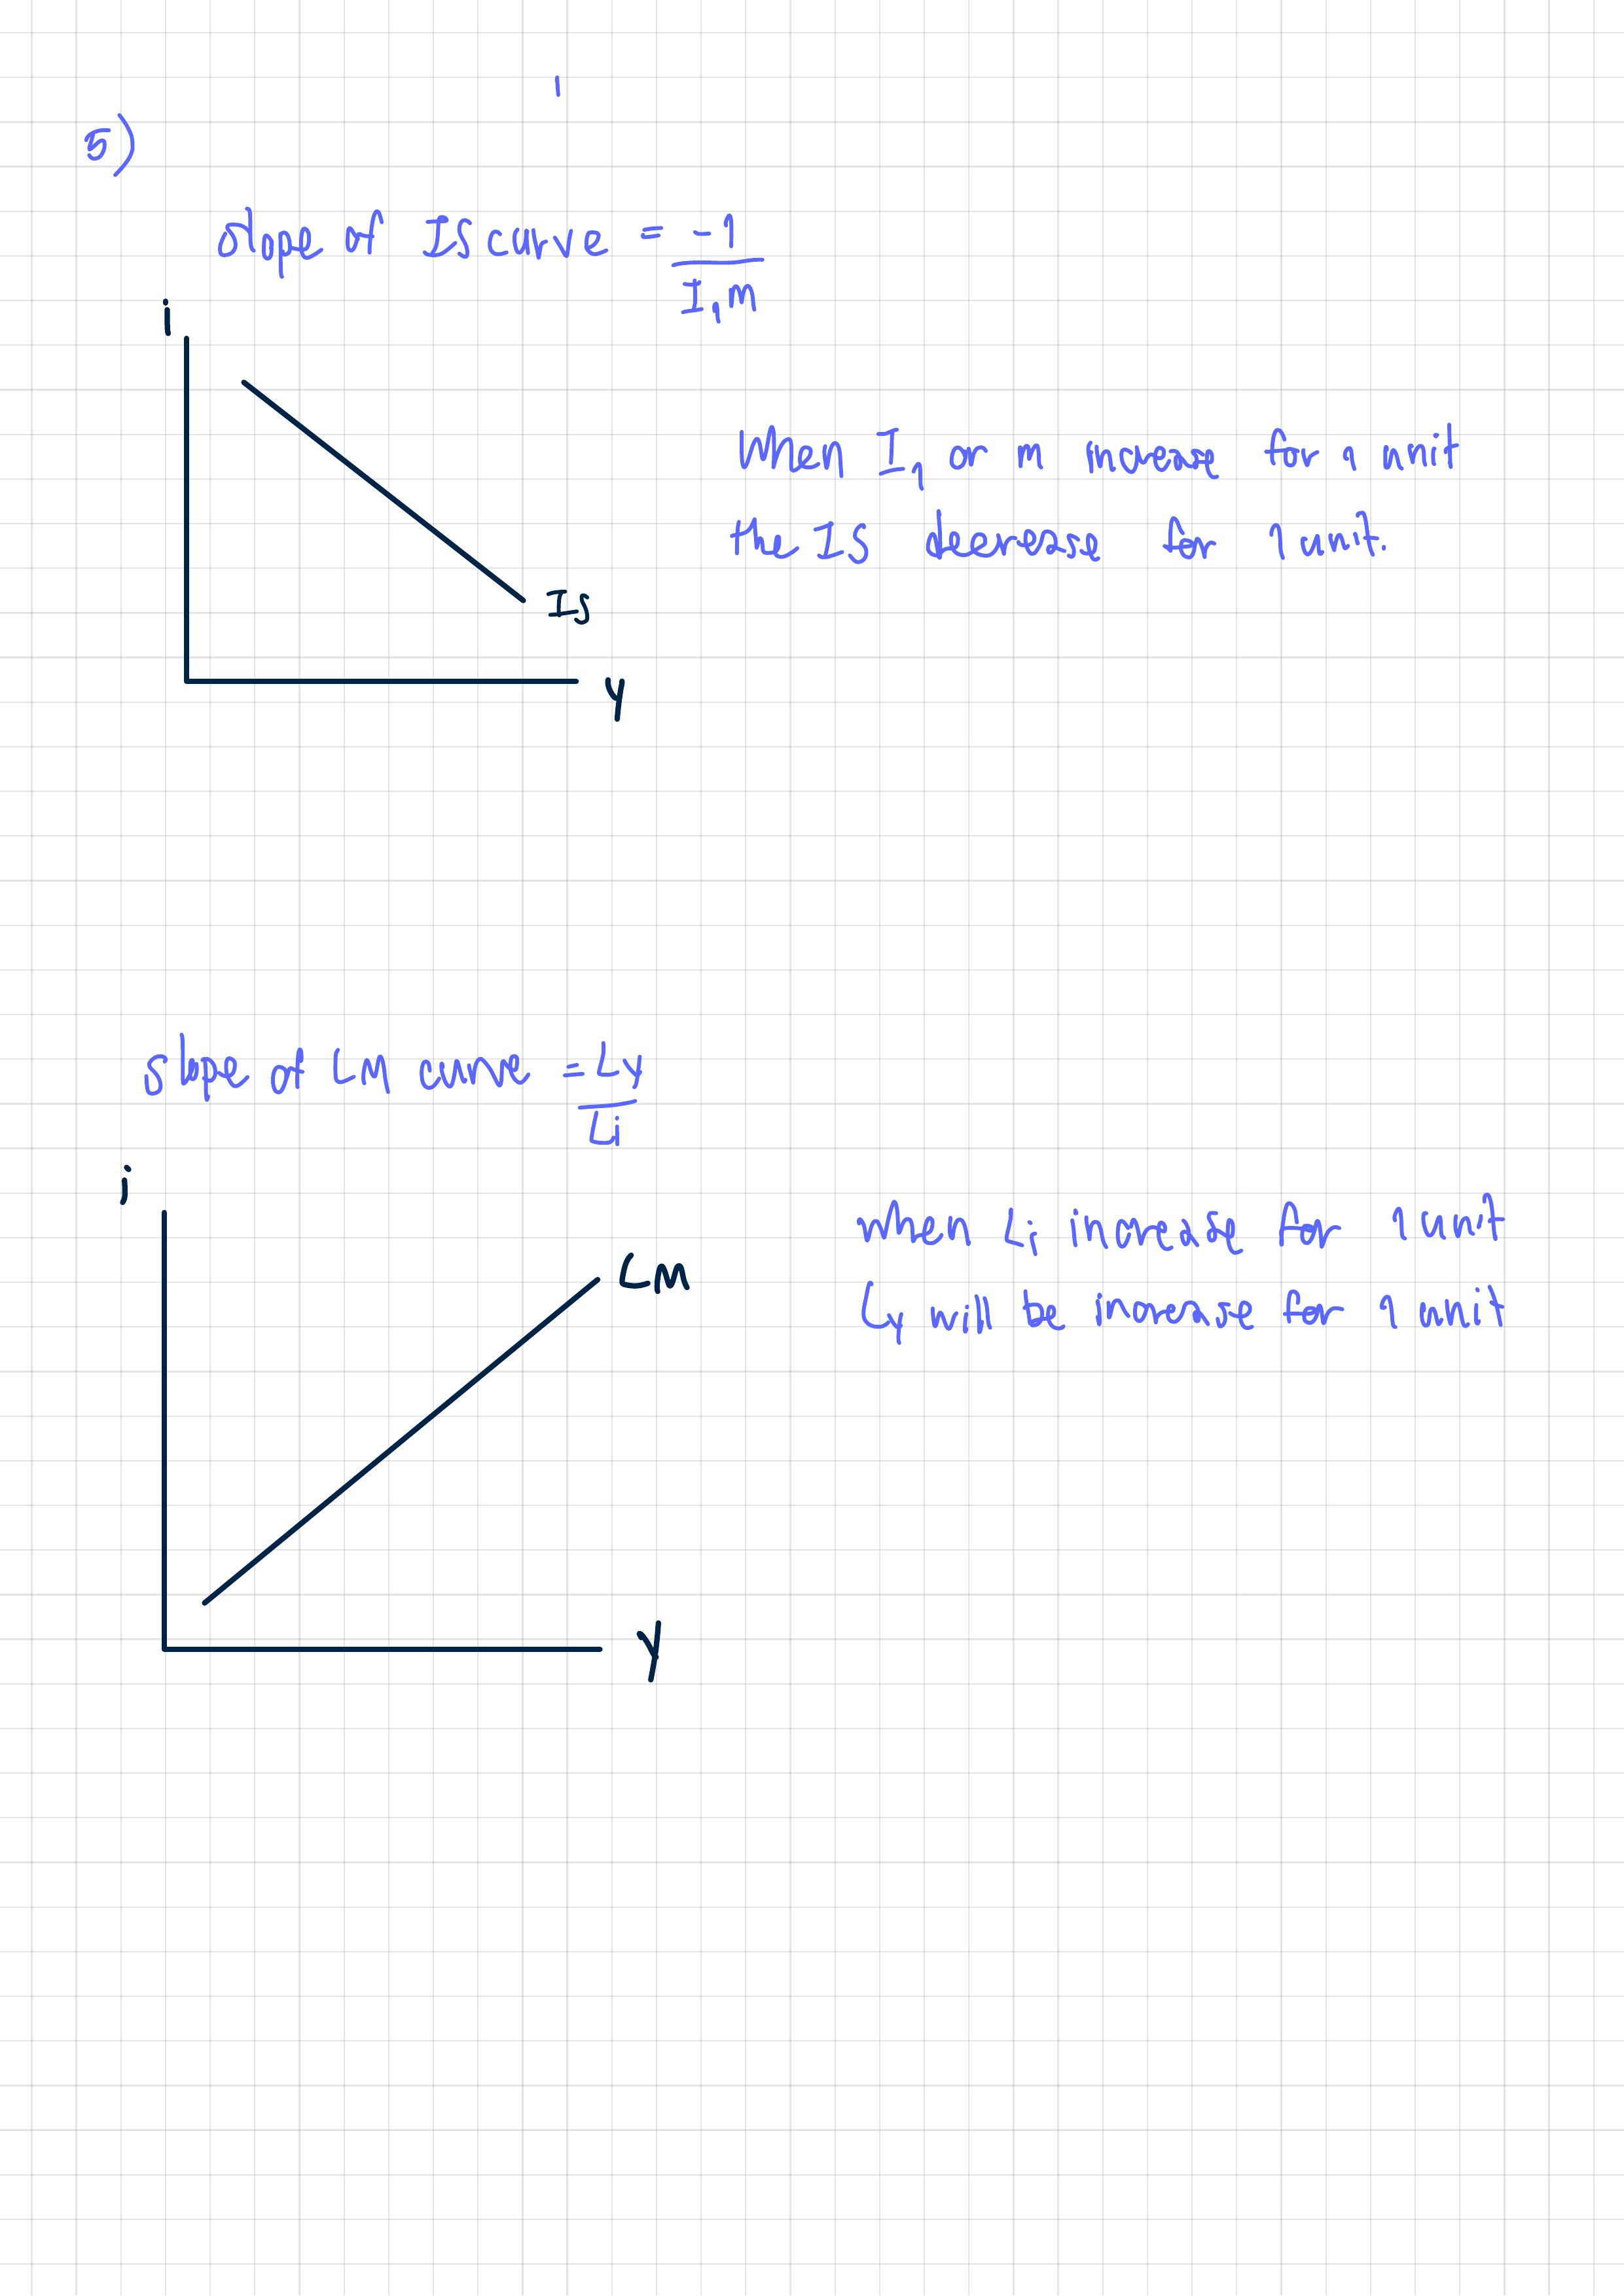 5)
slope of IS curve = -1
I₁m
i
When I₁ or m increase for 1 unit
the IS decrease for 1 unit.
IS
y
slope of LM curve = Ly
Li
i
When Li increase for 1 unit
LM
Ly will be increase for 1 unit
y